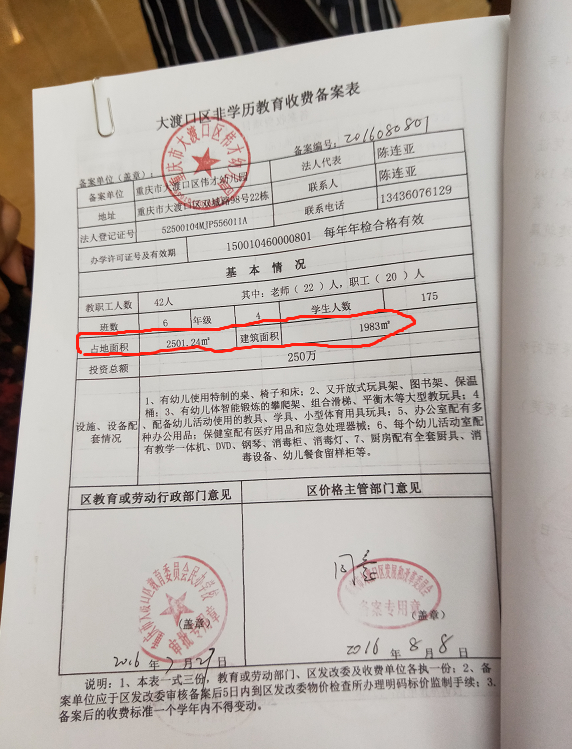 大渡口区非学历教育收费备案表
备案单位(盖章): 备案编号: 2016080801
备案单位 重庆市大渡口区伟才幼儿园 法人代表 陈连亚
地址 重庆市大渡口区双城路98号22栋 联系人 陈连亚
法人登记证号 52500104MJP556011A 联系电话 13436076129
办学许可证号及有效期 150010460000801 每年年检合格有效
基本情况
教职工人数 42人 其中:老师(22)人,职工(20)人
班数 6 年级 4 学生人数 175
占地面积 2501.24㎡ 建筑面积 1983㎡
投资总额 250万
设施、设备配套情况
1、有幼儿使用特制的桌、椅子和床;2、又开放式玩具架、图书架、保温
桶;3、有幼儿体智能锻炼的攀爬架、组合滑梯、平衡木等大型教玩具;4
、配备幼儿活动使用的教具、学具、小型体育用具玩具;5、办公室配有多
种办公用品;保健室配有医疗用品和应急处理器械;6、每个幼儿活动室配
有教学一体机、DVD、钢琴、消毒柜、消毒灯、7、厨房配有全套厨具、消
毒设备、幼儿餐食留样柜等。
区教育或劳动行政部门意见 区价格主管部门意见
同意
(盖章) (盖章)
2016年7月27日 2016年8月8日
说明:1、本表一式三份,教育或劳动部门、区发改委及收费单位各执一份;2、备
案单位应于区发改委审核备案后5日内到区发改委物价检查所办理明码标价监制手续;3、
备案后的收费标准一个学年内不得变动。